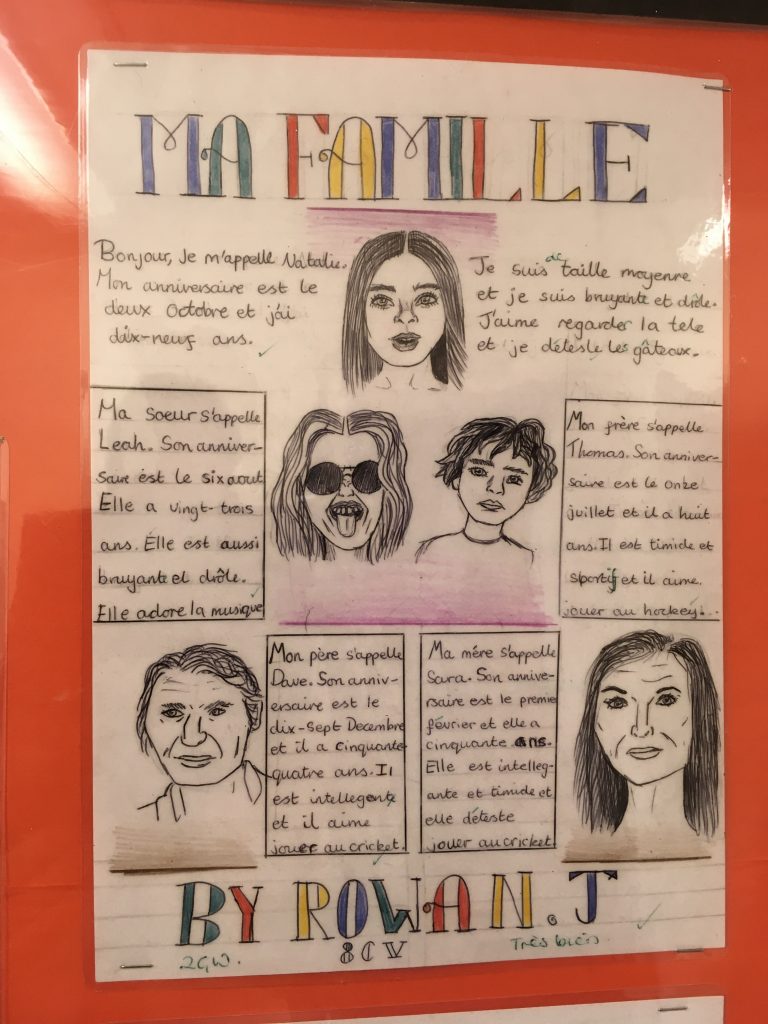 MA FAMILLE
Bonjour, Je m'appelle Natalie.
Mon anniversaire est le
deux Octobre et j'ai
dix-neuf ans.
Je suis de taille moyenne
et je suis bruyante et drôle.
J'aime regarder la tele
et je déteste les gâteaux.
Ma soeur s'appelle
Leah. Son anniver-
saire est le six aout
Elle a vingt-trois
ans. Elle est aussi
bruyante et drôle.
Elle adore la musique
Mon frère s'appelle
Thomas. Son anniver-
saire est le onze
juillet et il a huit
ans. Il est timide et
sportif et il aime.
jouer au hockey!..
Mon père s'appelle
Dave. Son anniv-
ersaire est le
dix-Sept Decembre
et il a cinquante
quatre ans. Il
est intellegent
et il aime
jouer au cricket.
Ma mére s'appelle
Sara. Son annive-
rsaire est le premier
février et elle a
cinquante ans.
Elle est intelleg-
ante et timide et
elle déteste
jouer au cricket
BY ROWAN.J
8CV
2GW.
Très bien